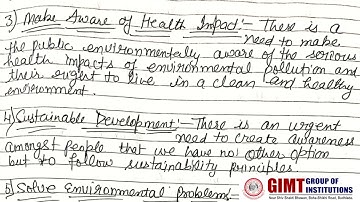 3) Make Aware of Health Impact:- There is a
need to make
the public environmentally aware of the serious
health impacts of environmental pollution and
their right to live in a clean and healthy
environment.
4) Sustainable Development:- There is an urgent
need to create awareness
amongst people that we have not other option
but to follow sustainability principles.
5) Solve Environmental problems:-
GIMT GROUP OF
INSTITUTIONS